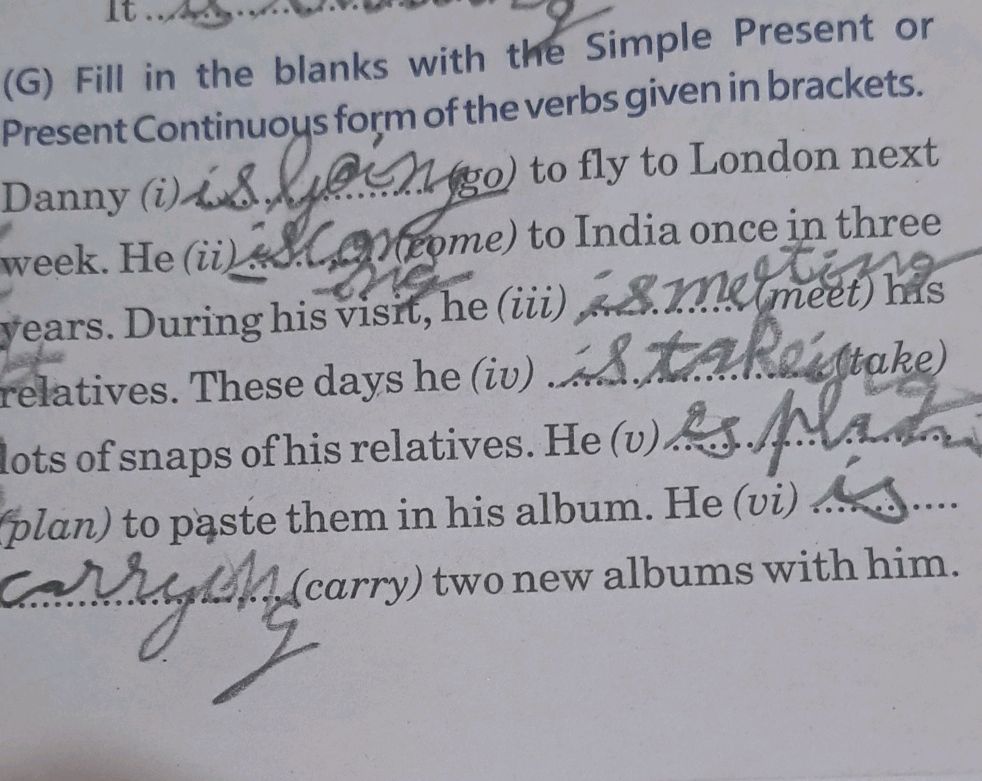 It ..is
(G) Fill in the blanks with the Simple Present or
Present Continuous form of the verbs given in brackets.
Danny (i) is going (go) to fly to London next
week. He (ii) is coming (come) to India once in three
years. During his visit, he (iii) is meeting (meet) his
relatives. These days he (iv) is taking (take)
lots of snaps of his relatives. He (v) is
(plan) to paste them in his album. He (vi) is
carrying (carry) two new albums with him.